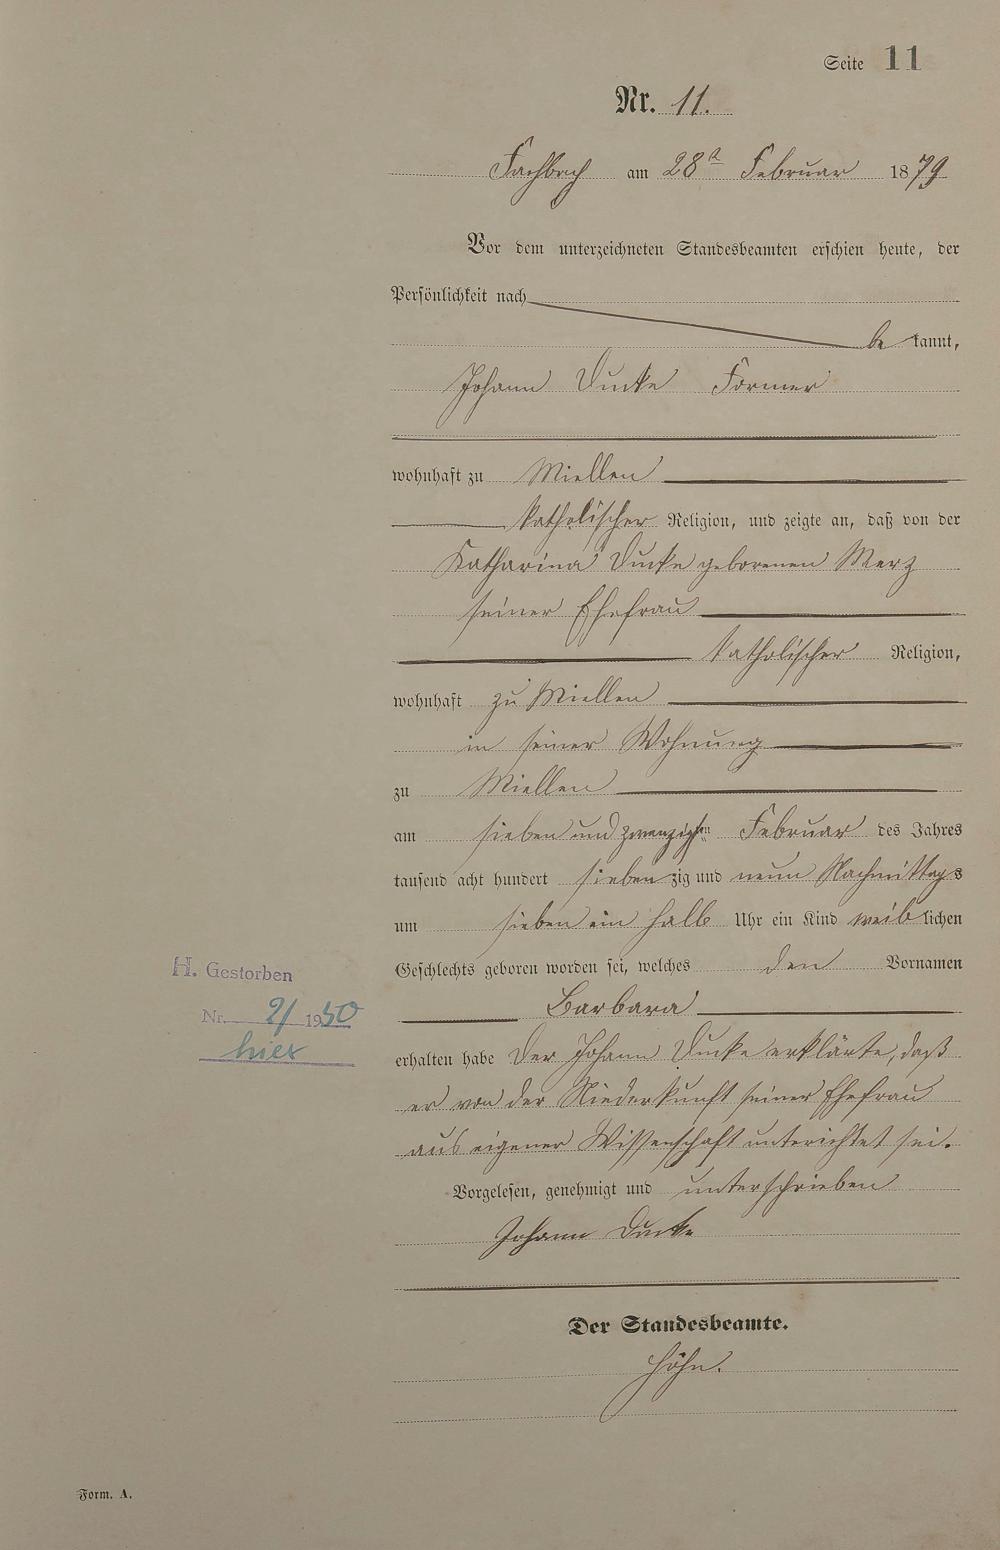 Seite 11
Nr. 11.
Fachbach am 28t Februar 1879
Vor dem unterzeichneten Standesbeamten erschien heute, der
Persönlichkeit nach
be kannt,
Johann Ducke Former
wohnhaft zu Miellen
katholischer Religion, und zeigte an, daß von der
Katharina Ducke geborenen Merz
seiner Ehefrau
katholischer Religion,
wohnhaft zu Miellen
in seiner Wohnung
zu Miellen
am sieben und zwanzigsten Februar des Jahres
tausend acht hundert sieben zig und neun Nachmittags
um sieben ein halb Uhr ein Kind weiblichen
Geschlechts geboren worden sei, welches den Vornamen
Barbara
erhalten habe Der Johann Ducke erklärte, daß
er von der Niederkunft seiner Ehefrau
aus eigener Wissenschaft unterichtet sei.
Vorgelesen, genehmigt und unterschrieben
Johann Ducke
Der Standesbeamte.
Höhn.
H. Gestorben
Nr. 2/ 1950
hier
Form. A.